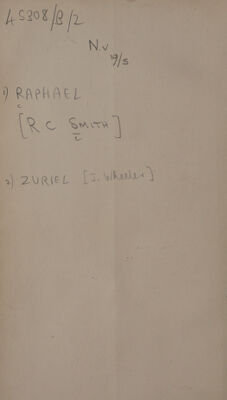 45308/B/2
N.v
19/5
1) RAPHAEL
[R C SMITH]
2) ZURIEL [J. Wheeler]